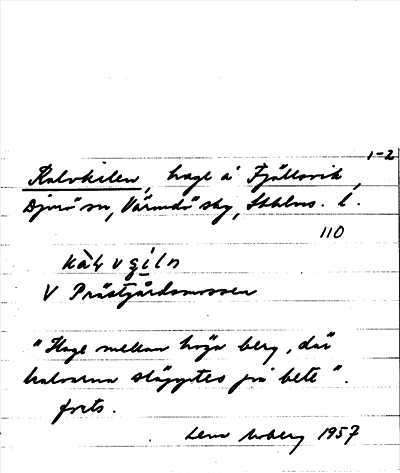 1-2
Kalvkilen, hage å Fjällsvik,
Djurö sn, Värmdö skg, Sthlms. l.
110
kàlvçiln
V Prästgårdsmossen
"Hage mellan höga berg, där
kalvarna släpptes på bete".
forts.
Lena Moberg 1957